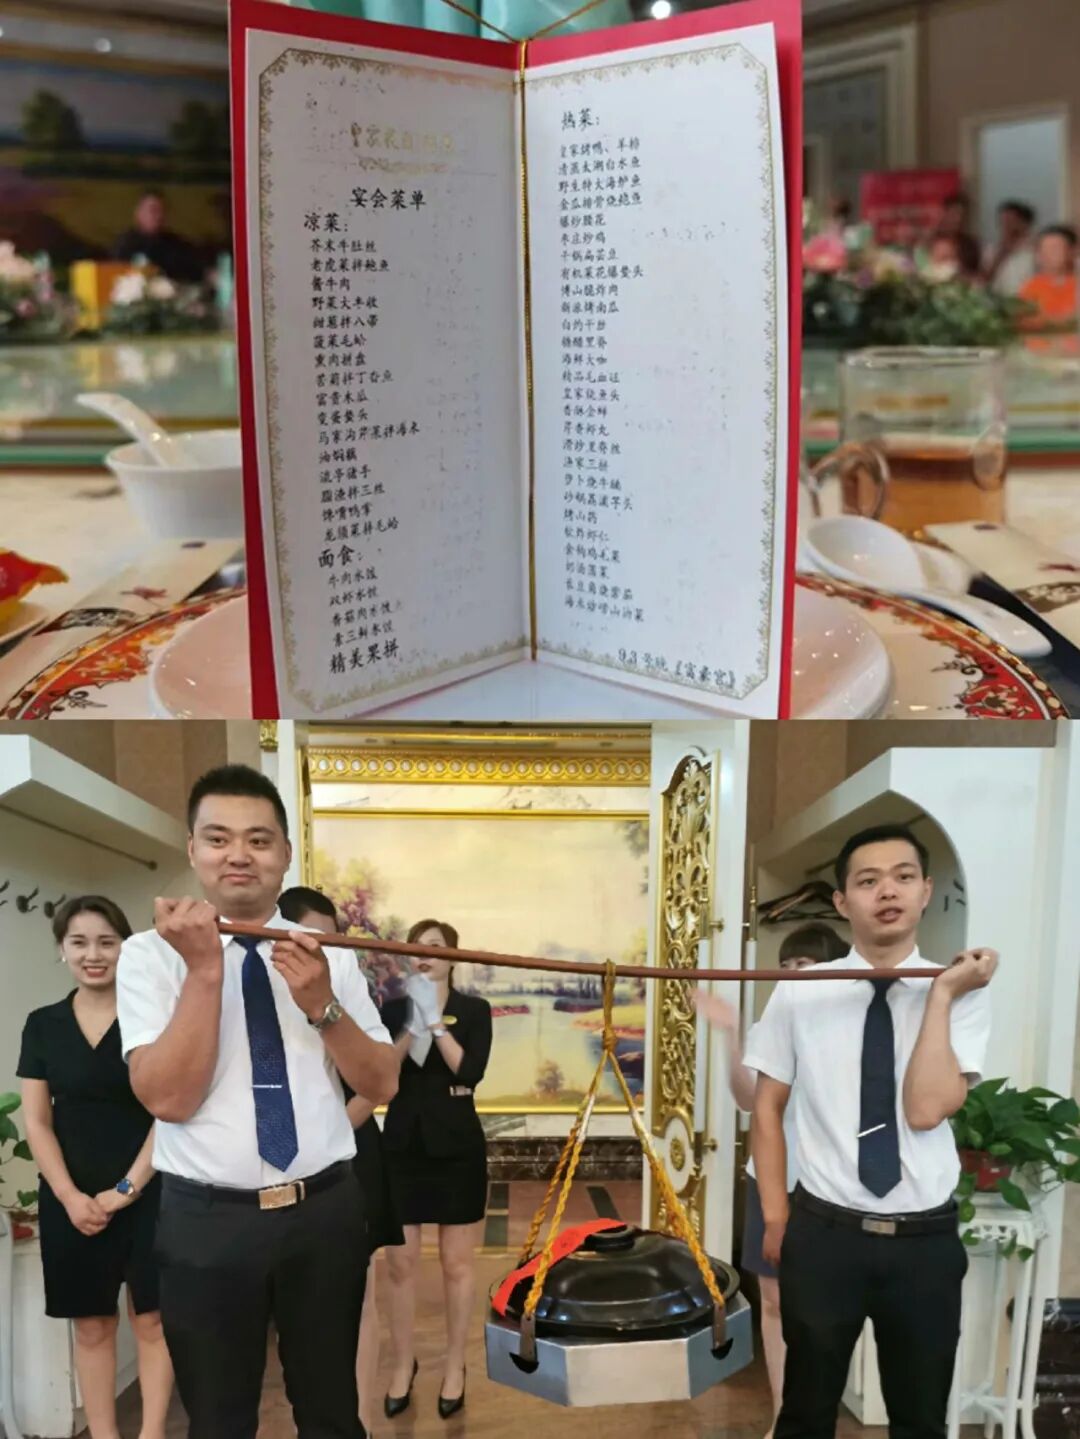 宴会菜单
凉菜：
芥末牛肚丝
老虎菜拌鲍鱼
酱牛肉
野菜大丰收
甜葱拌八带
菠菜毛蛤
熏肉拼盘
苦菊拌丁香鱼
富贵木瓜
变蛋垫头
马家沟芹菜拌海米
油焖藕
流亭猪手
脂渣拌三丝
馋嘴鸭掌
龙须菜拌毛蛤
面食：
牛肉水饺
双虾水饺
香菇肉水饺
素三鲜水饺
精美果拼
热菜：
皇家烤鸭、羊排
清蒸太湖白水鱼
野生特大海鲈鱼
金瓜排骨烧鲍鱼
爆炒腰花
枣庄炒鸡
干锅扁芸豆
有机菜花爆垫头
博山脆炸肉
新派烤南瓜
白灼干丝
糖醋里脊
海鲜大咖
精品毛血旺
皇家烧鱼头
香酥全鲜
芹香虾丸
滑炒里脊丝
渔家三拼
萝卜烧牛腩
砂锅荔浦芋头
烤山药
软炸虾仁
金钩鸡毛菜
奶油菠菜
长豆角烧紫茄
海米幼崂山油菜
93号晚《富豪宫》